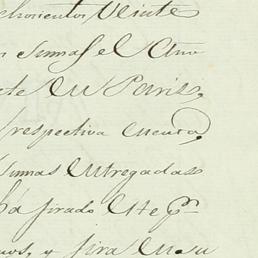 chocientos Veinte
sumas el Año
En Paris,
respectiva cuenta,
sumas Entregadas
ha jirado Este pr.
y jira En su